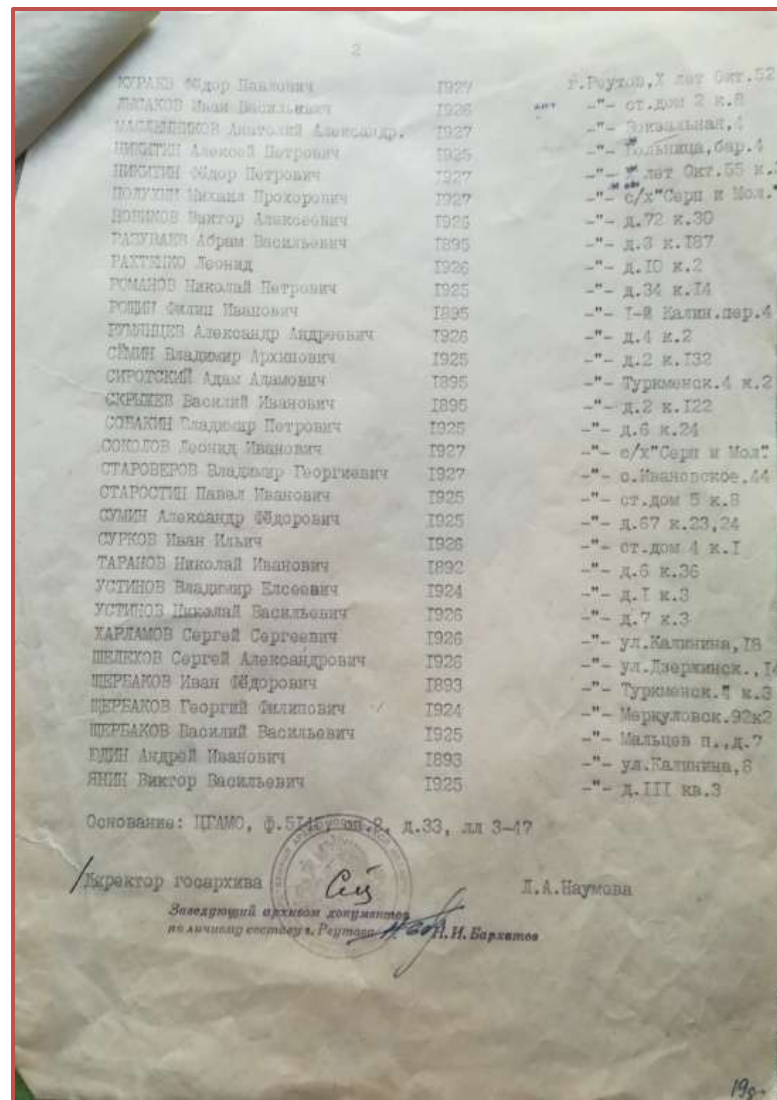 2
КУРАЕВ Фёдор Павлович 1927 г.Реутов,X лет Окт.52
ЛЫСАКОВ Иван Васильевич 1926 -"- ст.дом 2 к.8
МАСЛЕННИКОВ Анатолий Александр. 1927 -"- Вокзальная,4
НИКИТИН Алексей Петрович 1925 -"- Больница,бар.4
НИКИТИН Фёдор Петрович 1927 -"- X лет Окт.55 к.
ПОЛУХИН Михаил Прохорович 1927 -"- с/х"Серп и Мол."
НОВИКОВ Виктор Алексеевич 1926 -"- д.72 к.30
РАЗУВАЕВ Абрам Васильевич 1895 -"- д.3 к.187
РАХТЕНКО Леонид 1926 -"- д.10 к.2
РОМАНОВ Николай Петрович 1925 -"- д.34 к.14
РОЩИН Филип Иванович 1895 -"- I-й Калин.пер.4
РУМЯНЦЕВ Александр Андреевич 1926 -"- д.4 к.2
СЁМИН Владимир Архипович 1925 -"- д.2 к.132
СИРОТСКИЙ Адам Адамович 1895 -"- Туркменск.4 к.2
СКРЫЖЕВ Василий Иванович 1895 -"- д.2 к.122
СОБАКИН Владимир Петрович 1925 -"- д.6 к.24
СОКОЛОВ Леонид Иванович 1927 -"- с/х"Серп и Мол".
СТАРОВЕРОВ Владимир Георгиевич 1927 -"- с.Ивановское.44
СТАРОСТИН Павел Иванович 1925 -"- ст.дом 5 к.8
СУМИН Александр Фёдорович 1925 -"- д.67 к.23,24
СУРКОВ Иван Ильич 1926 -"- ст.дом 4 к.I
ТАРАНОВ Николай Иванович 1892 -"- д.6 к.36
УСТИНОВ Владимир Елсеевич 1924 -"- д.I к.3
УСТИНОВ Николай Васильевич 1926 -"- д.7 к.3
ХАРЛАМОВ Сергей Сергеевич 1926 -"- ул.Калинина,18
ШЕЛЕХОВ Сергей Александрович 1926 -"- ул.Дзержинск.,14
ЩЕРБАКОВ Иван Фёдорович 1893 -"- Туркменск. к.3
ЩЕРБАКОВ Георгий Филипович 1924 -"- Меркуловск.92к2
ЩЕРБАКОВ Василий Васильевич 1925 -"- Мальцев п.,д.7
ЮДИН Андрей Иванович 1893 -"- ул.Калинина,8
ЯНИН Виктор Васильевич 1925 -"- д.III кв.3
Основание: ЦГАМО, оп.2, д.33, лл 3-47
/Директор госархива Л.А.Наумова
Заведующий архивом документов
по личному составу г. Реутова Н.И. Бархатов